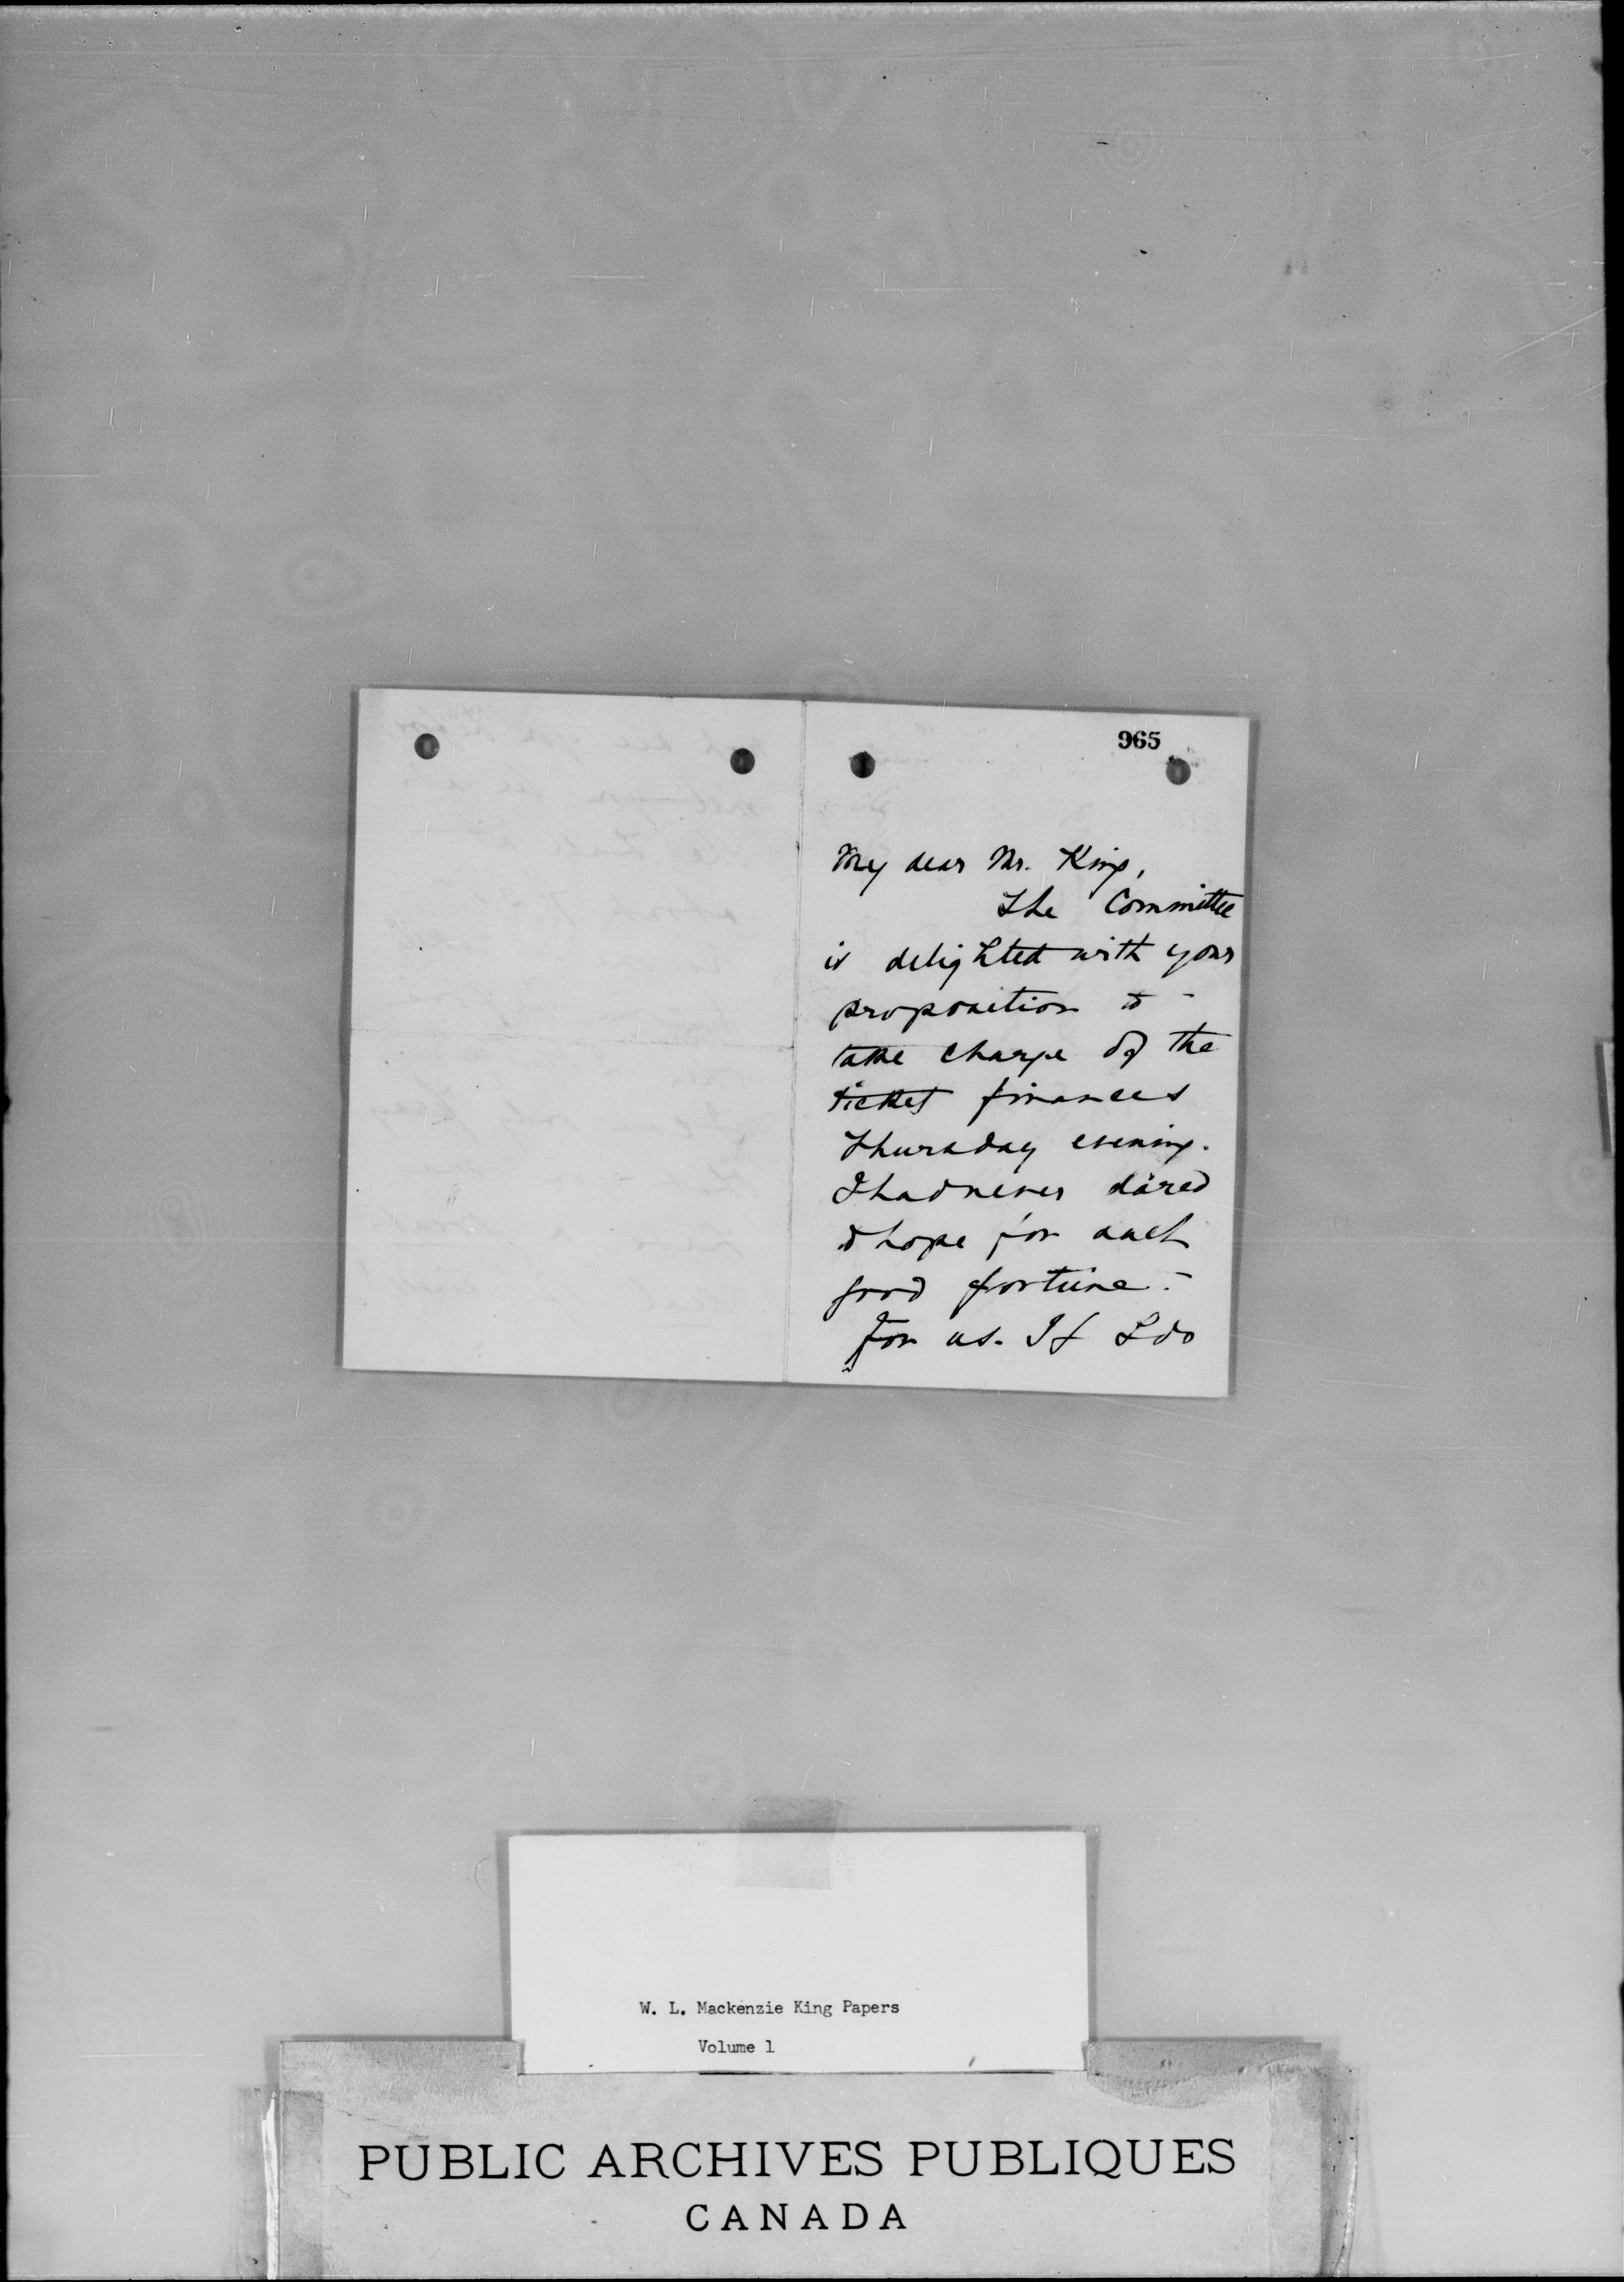 965
My dear Mr. King,
The Committee
is delighted with your
proposition to
take charge of the
ticket finances
Thursday evening.
I had never dared
to hope for such
good fortune -
for us. If I do
W. L. Mackenzie King Papers
Volume 1
PUBLIC ARCHIVES PUBLIQUES
CANADA